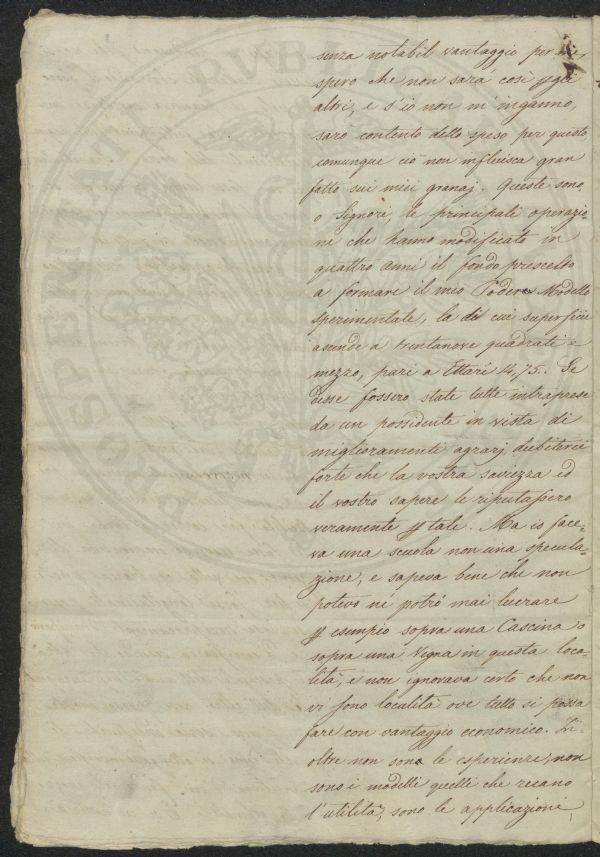 senza notabil vantaggio per me,
spero che non sarà così pgli
altri, e s'io non m'inganno,
sarò contento dello speso per questo
comunque ciò non influisca gran
fatto sui miei granaj. Queste sono,
o Signori, le principali operazio-
ni che hanno modificato in
quattro anni il fondo prescelto
a formare il mio Podere Modello
sperimentale, la di cui superficie
ascende a trentanove quadrati e
mezzo, pari a Ettari 14,75. Se
desse fossero state tutte intraprese
da un possidente in vista di
miglioramenti agrarj, dubiterei
forte che la vostra saviezza ed
il vostro sapere le riputassero
veramente p tale. Ma io face-
va una scuola non una specula-
zione, e sapeva bene che non
potevo nè potrò mai lucrare
p esempio sopra una Cascina o
sopra una Vigna in questa loca-
lità, e non ignorava certo che non
vi sono località ove tutto si possa
fare con vantaggio economico. I-
oltre non sono le esperienze, non
sono i modelli quelli che recano
l'utilità, sono le applicazioni,